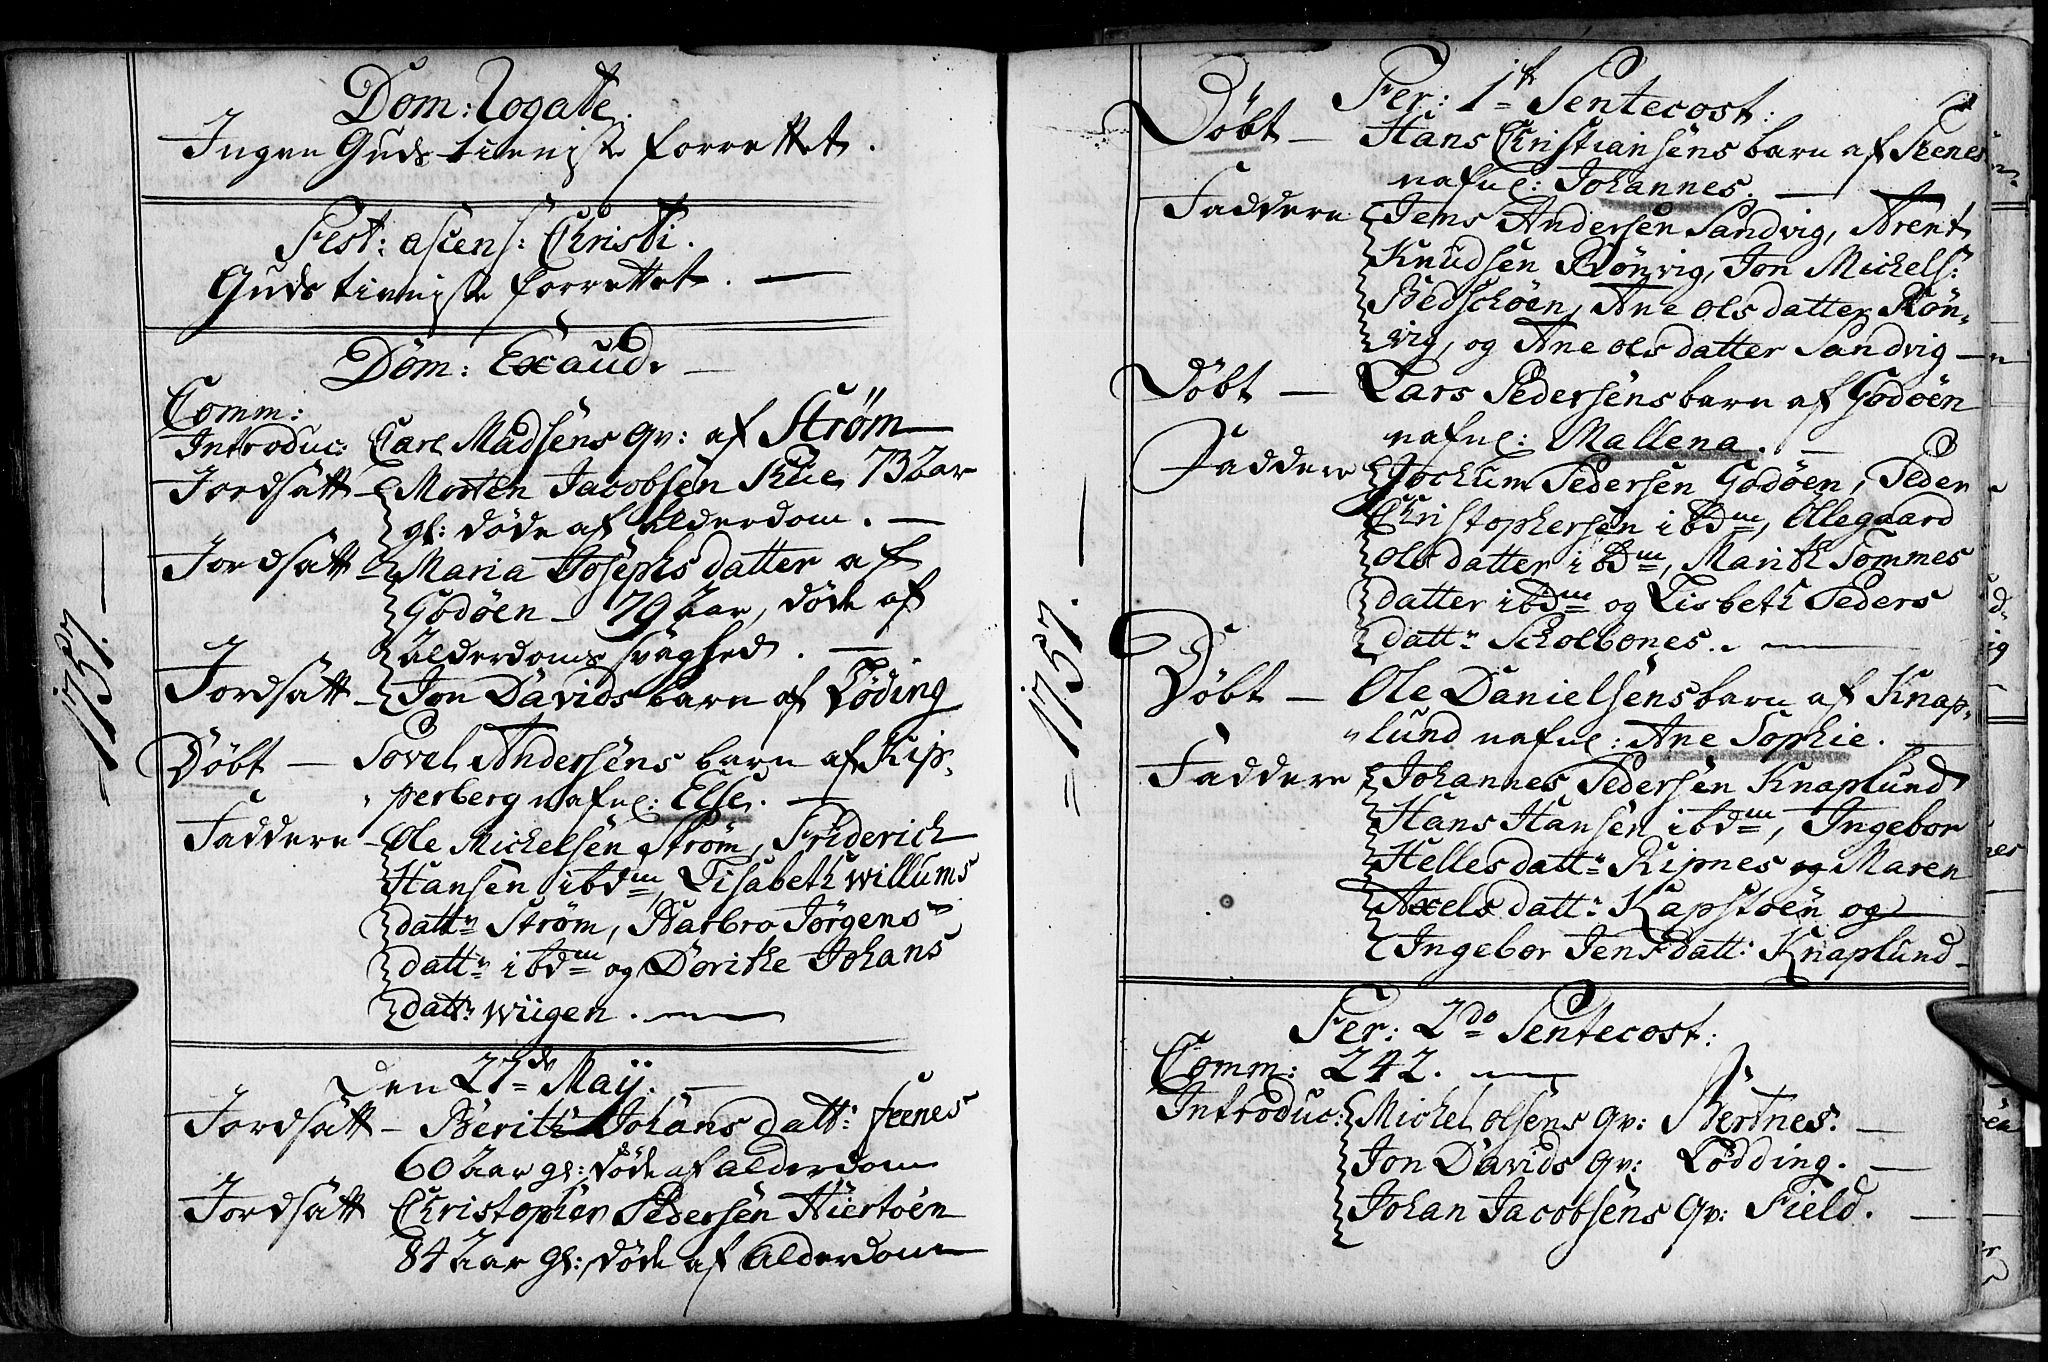 1757.
Dom: Rogate.
Ingen Guds tieniste forrettet.
Fest: ascens: Christi.
Guds tieniste forrettet.
Dom: Exaudi
Comm:
Introduc: Carl Madsens Qv: af Strøm
Jordsatt - Morten Jacobsen 73 Aar
gl: døde af Alderdom.
Jordsatt - Maria Josephsdatter af
Godøen 79 Aar, døde af
Alderdoms svaghed.
Jordsatt - Jon Davids barn af Løding
Døbt - Povel Andersens barn af Kip,
perberg nafnl: Else.
Faddere - Ole Michelsen Strøm, Friderich
Hansen ibdm, Lisabeth Willums
datter Strøm, Barbro Jørgens
datter ibdm og Dorithe Johans
datt: Wiigen.
Den 27de Maij.
Jordsatt - Berith Johansdatt: Seenes
60 Aar gl: døde af alderdom
Jordsatt Christopher Pedersen Hiertøen
84 Aar gl: døde af Alderdom
1757.
Fer: 1st Pentecost:
Døbt - Hans Christiansens barn af Seenes
nafnl: Johannes.
Faddere Jens Andersen Sandvig, Arent
Knudsen Rønvig, Jon Michels:
Bedschøen, Ane Olsdatter Røn,
vig, og Ane Olsdatter Sandvig
Døbt - Lars Pedersens barn af Godøen
nafnl: Mallena.
Faddere Jochum Pedersen Godøen, Peder
Christophersen ibdm, Ollegaard
Olsdatter ibdm, Marith Tommes
datter ibdm og Lisbeth Peders
datt: Scholbones.
Døbt - Ole Danielsens barn af Knap,
lund nafnl: Ane Sophie.
Faddere Johannes Pedersen Knaplund
Hans Hansen ibdm, Ingebor
Hellesdatt: Ripnes og Maren
Axelsdatt: Kapstøen og
Ingebor Jensdatt: Knaplund
Fer: 2do Pentecost:
Comm: 242.
Introduc: Michel Olsens Qv: Bertnes.
Jon Davids Qv: Lødding.
Johan Jacobsens Qv: Field.